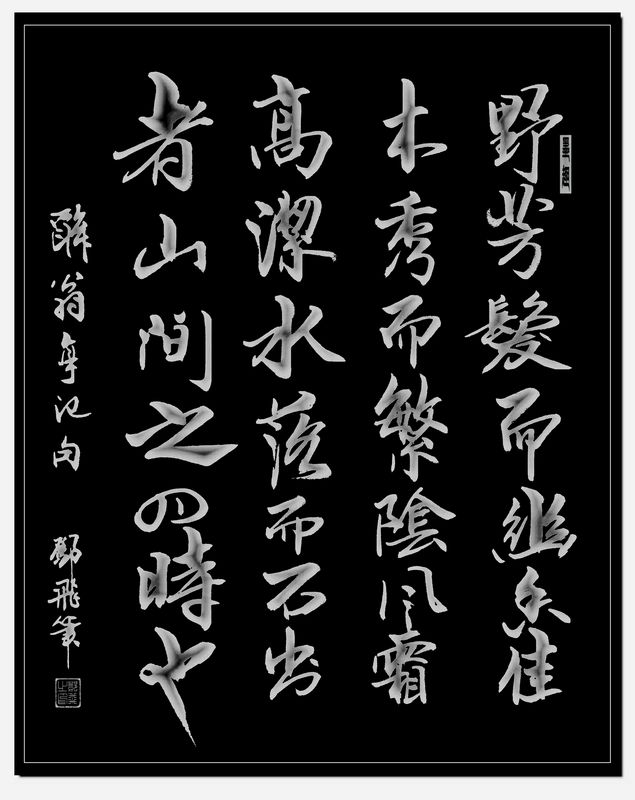 野芳髮而幽香佳
木秀而繁陰风霜
高潔水落而石出
者山間之四時也
醉翁亭记句 鄧飛筆